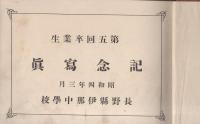 第五回卒業生
記念寫眞
昭和四年三月
長野縣伊那中學校